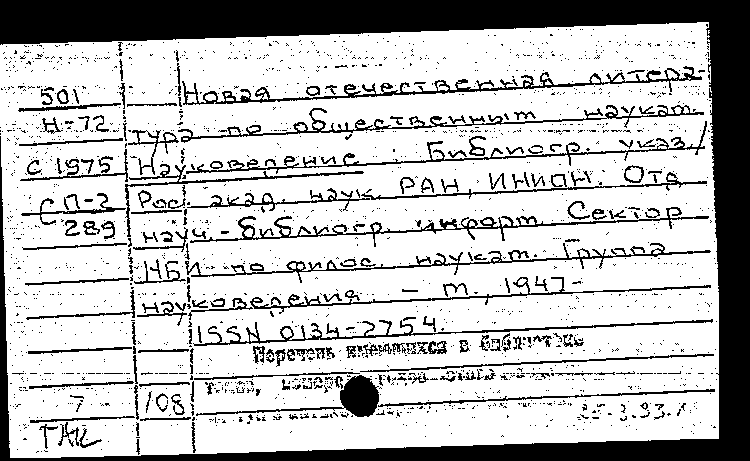 501 Новая отечественная литера-
Н-72 тура по общественным наукам.
С 1975 Науковедение : Библиогр. указ./
СП-2 Рос. акад. наук. РАН, ИНИОН. Отд
289 науч.-библиогр. информ. Сектор
НБИ по филос. наукам. Группа
науковедения. - М., 1947-
ISSN 0134-2754.
Перечень имеющихся в библиотеке
7 /08